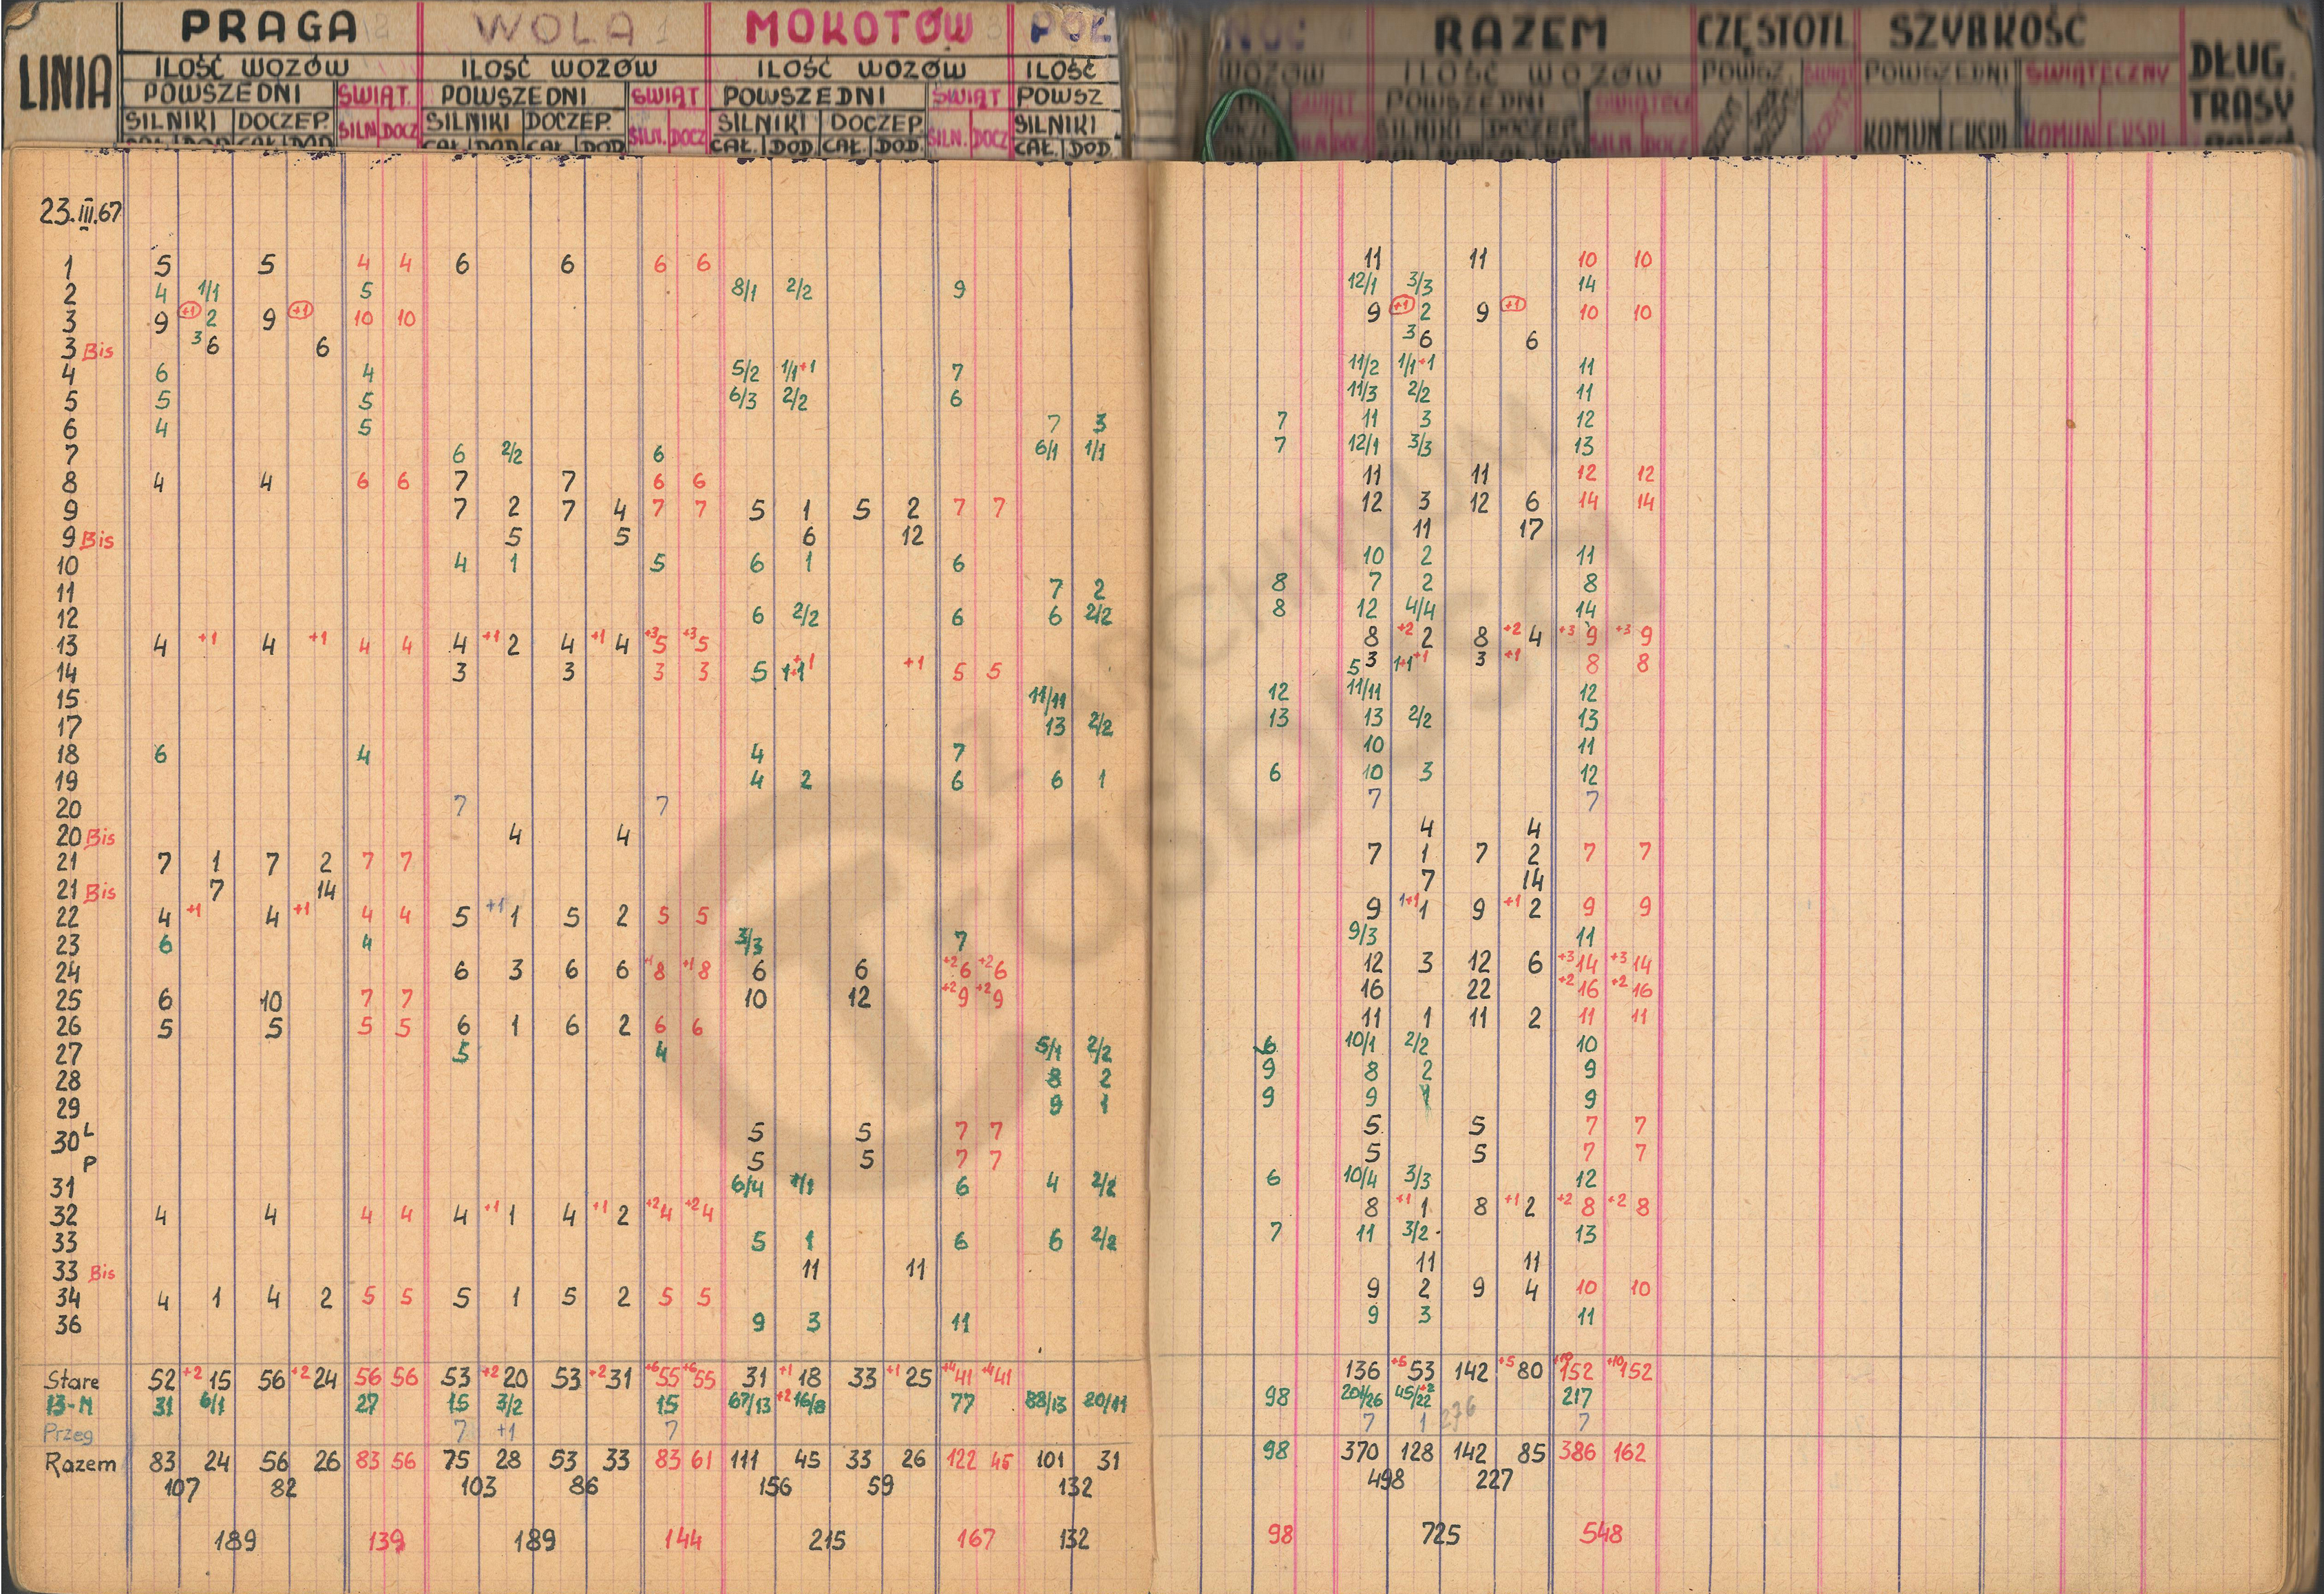 LINIA PRAGA WOLA MOKOTÓW PÓŁ NOC RAZEM CZĘSTOTL SZYBKOŚĆ DŁUG. TRASY
ILOŚĆ WOZÓW ILOŚĆ WOZÓW ILOŚĆ WOZÓW ILOŚĆ WOZÓW ILOŚĆ WOZÓW POWSZ. POWSZEDNI ŚWIĄTECZNY
POWSZEDNI ŚWIĄT. POWSZEDNI ŚWIĄT POWSZEDNI ŚWIĄT POWSZ POWSZEDNI
SILNIKI DOCZEP. SILN. DOCZ SILNIKI DOCZEP. SILN. DOCZ SILNIKI DOCZEP. SILN. DOCZ SILNIKI SILNIKI DOCZEP. SILN. DOCZ KOMUN EKSPL KOMUN EKSPL
CAŁ. DOD. CAŁ. DOD. CAŁ. DOD. CAŁ. DOD. CAŁ. DOD. CAŁ. DOD. CAŁ. DOD.
23.III.67
1 5 5 4 4 6 6 6 6 11 11 10 10
2 4 1/1 5 8/1 2/2 9 12/1 3/3 14
3 9 +1 2 9 +1 10 10 9 +1 2 9 +1 10 10
3 Bis 3 6 6 3 6 6
4 6 4 5/2 1/1+1 7 11/2 1/1+1 11
5 5 5 6/3 2/2 6 11/3 2/2 11
6 4 5 7 3 7 11 3 12
7 6 2/2 6 6/1 1/1 7 12/1 3/3 13
8 4 4 6 6 7 7 6 6 11 11 12 12
9 7 2 7 4 7 7 5 1 5 2 7 7 12 3 12 6 14 14
9 Bis 5 5 6 12 11 17
10 4 1 5 6 1 6 10 2 11
11 7 2 8 7 2 8
12 6 2/2 6 6 2/2 8 12 4/4 14
13 4 +1 4 +1 4 4 4 +1 2 4 +1 4 +3 5 +3 5 8 +2 2 8 +2 4 +3 9 +3 9
14 3 3 3 3 5 1+1 +1 +1 5 5 5 3 1+1 +1 3 +1 8 8
15 11/11 12 11/11 12
17 13 2/2 13 13 2/2 13
18 6 4 4 7 10 11
19 4 2 6 6 1 6 10 3 12
20 7 7 7 7
20 Bis 4 4 4 4
21 7 1 7 2 7 7 7 1 7 2 7 7
21 Bis 7 14 7 14
22 4 +1 4 +1 4 4 5 +1 1 5 2 5 5 9 1+1 1 9 +1 2 9 9
23 6 4 3/3 7 9/3 11
24 6 3 6 6 +1 8 +1 8 6 6 +2 6 +2 6 12 3 12 6 +3 14 +3 14
25 6 10 7 7 10 12 +2 9 +2 9 16 22 +2 16 +2 16
26 5 5 5 5 6 1 6 2 6 6 11 1 11 2 11 11
27 5 4 5/1 2/2 6 10/1 2/2 10
28 8 2 9 8 2 9
29 9 1 9 9 1 9
30 L 5 5 7 7 5 5 7 7
P 5 5 7 7 5 5 7 7
31 6/4 1/1 6 4 2/2 6 10/4 3/3 12
32 4 4 4 4 4 +1 1 4 +1 2 +2 4 +2 4 8 +1 1 8 +1 2 +2 8 +2 8
33 5 1 6 6 2/2 7 11 3/2 13
33 Bis 11 11 11 11
34 4 1 4 2 5 5 5 1 5 2 5 5 9 2 9 4 10 10
36 9 3 11 9 3 11
Stare 52 +2 15 56 +2 24 56 56 53 +2 20 53 +2 31 +6 55 +6 55 31 +1 18 33 +1 25 +4 41 +4 41 136 +5 53 142 +5 80 +10 152 +10 152
13-N 31 6/1 27 15 3/2 15 67/13 +2 16/8 77 88/13 20/11 98 201/26 45/22 +2 217
Przeg 7 +1 7 7 1 236 7
Razem 83 24 56 26 83 56 75 28 53 33 83 61 111 45 33 26 122 45 101 31 98 370 128 142 85 386 162
107 82 103 86 156 59 132 498 227
189 139 189 144 215 167 132 98 725 548